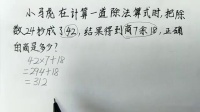 小马虎在计算一道除法算式时,把除
数24抄成了42,结果得到商7余18,正确
的商是多少?
42×7+18
=294+18
=312